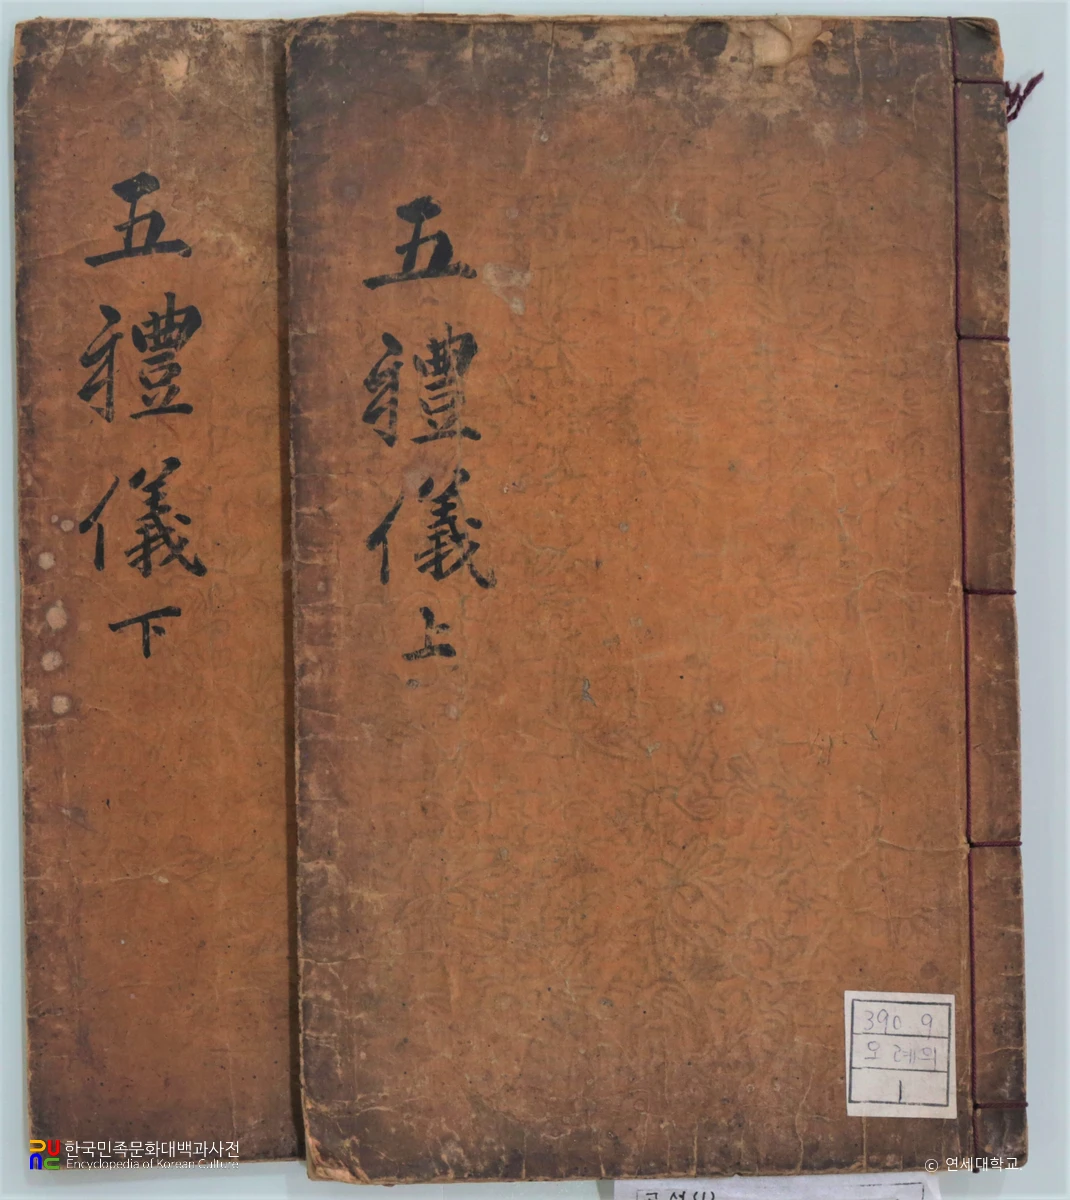 五禮儀上
五禮儀下
390 9
오례의
1
한국민족문화대백과사전
Encyclopedia of Korean Culture
© 연세대학교